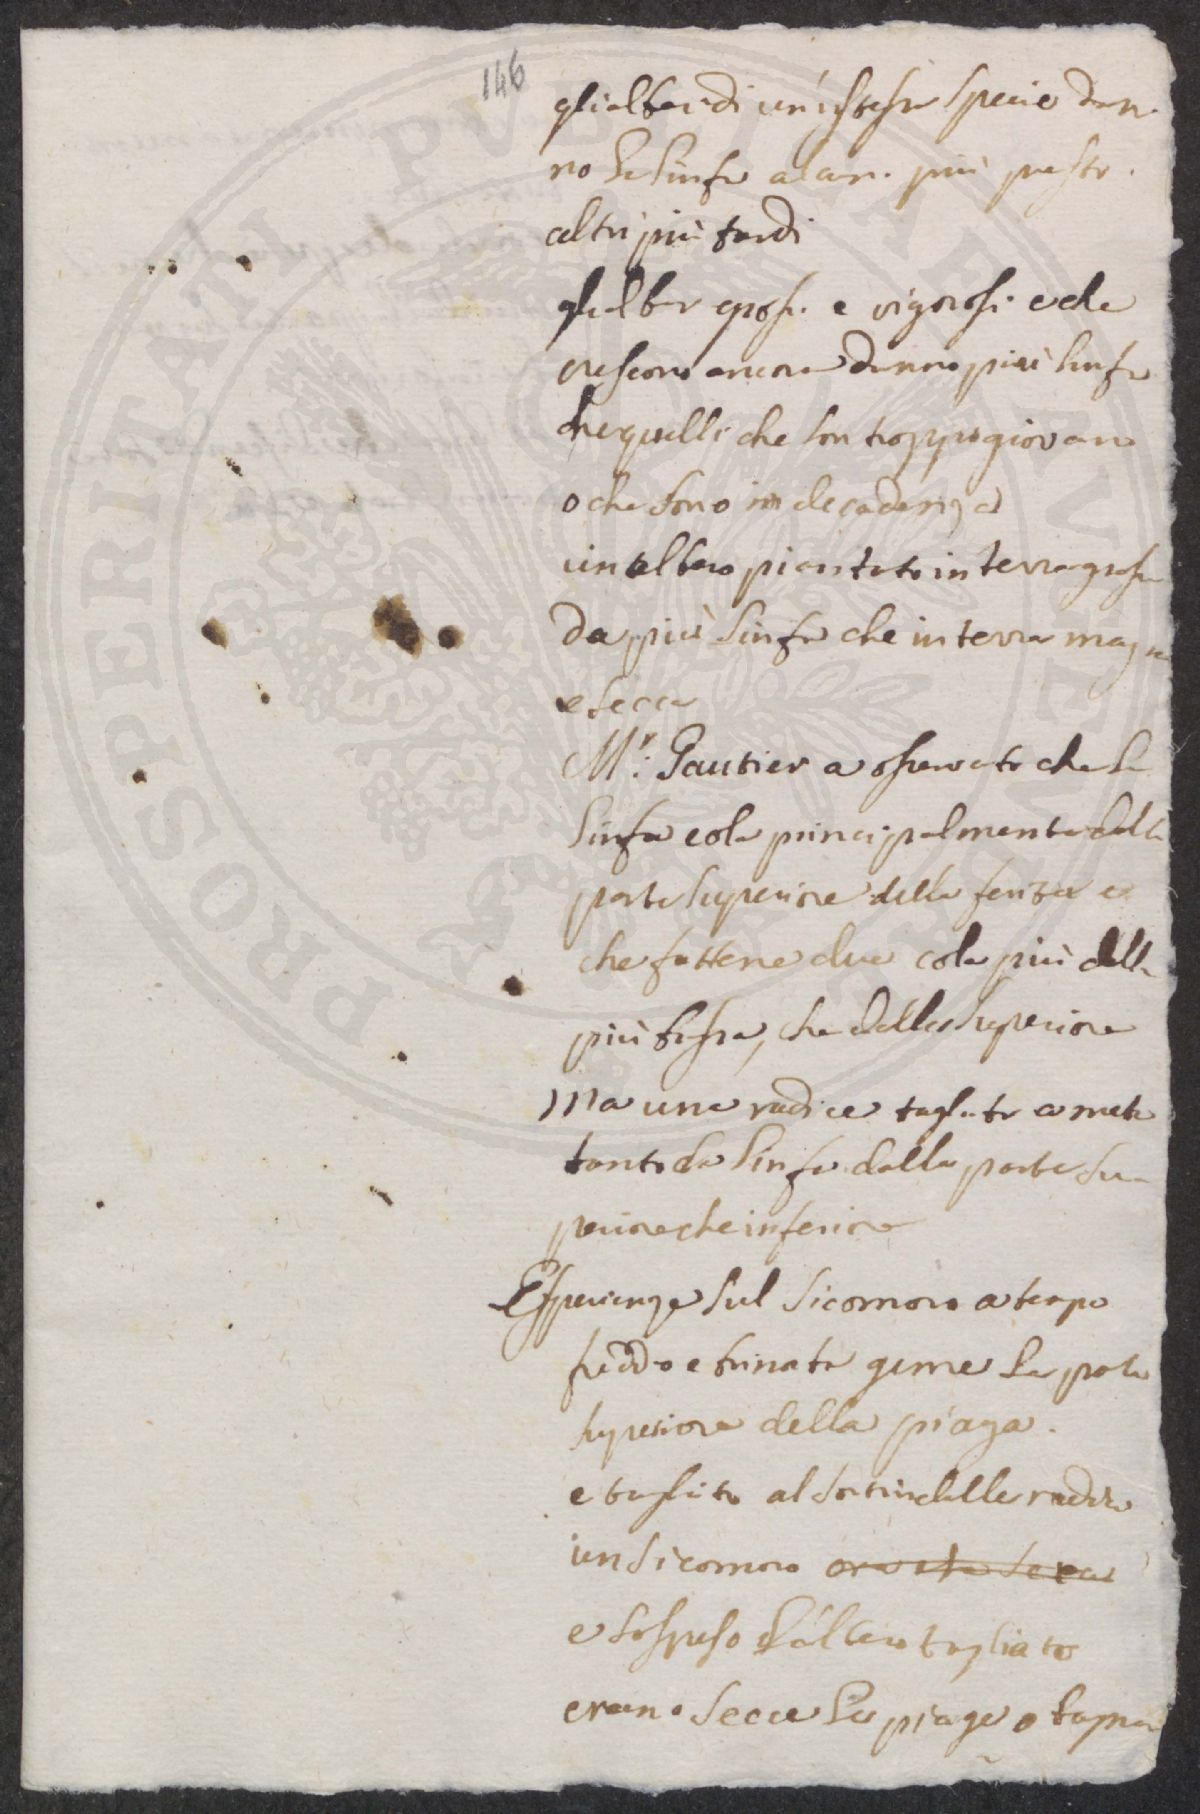 146
gli alberi di un'istessa specie dan-
no la linfa alcun. più presto.
altri più tardi
gl'alber grossi. e vigorosi. e che
crescono ancora danno più linfa
che quelli che son troppo giovani
o che sono in decadenza
un albero piantato in terra grassa
da più linfa che in terra magra
e secca
Mr. Gautier a osservato che la
linfa cola principalmente dalla
parte superiore della fenita e
che fattene due cola più dalla
più bassa, che dalla superiore
Ma una radice tagliata a metà
tanto da linfa dalla parte su-
periore che inferiore
Esperienza sul sicomoro a tempo
freddo e brinata geme la parte
superiore della piaga.
e tagliato al sortir delle radici
un sicomoro
e sospeso l'albero tagliato
erano secce le piage o tagna
PROSPERITATI PVBLICAE AVGENDAE